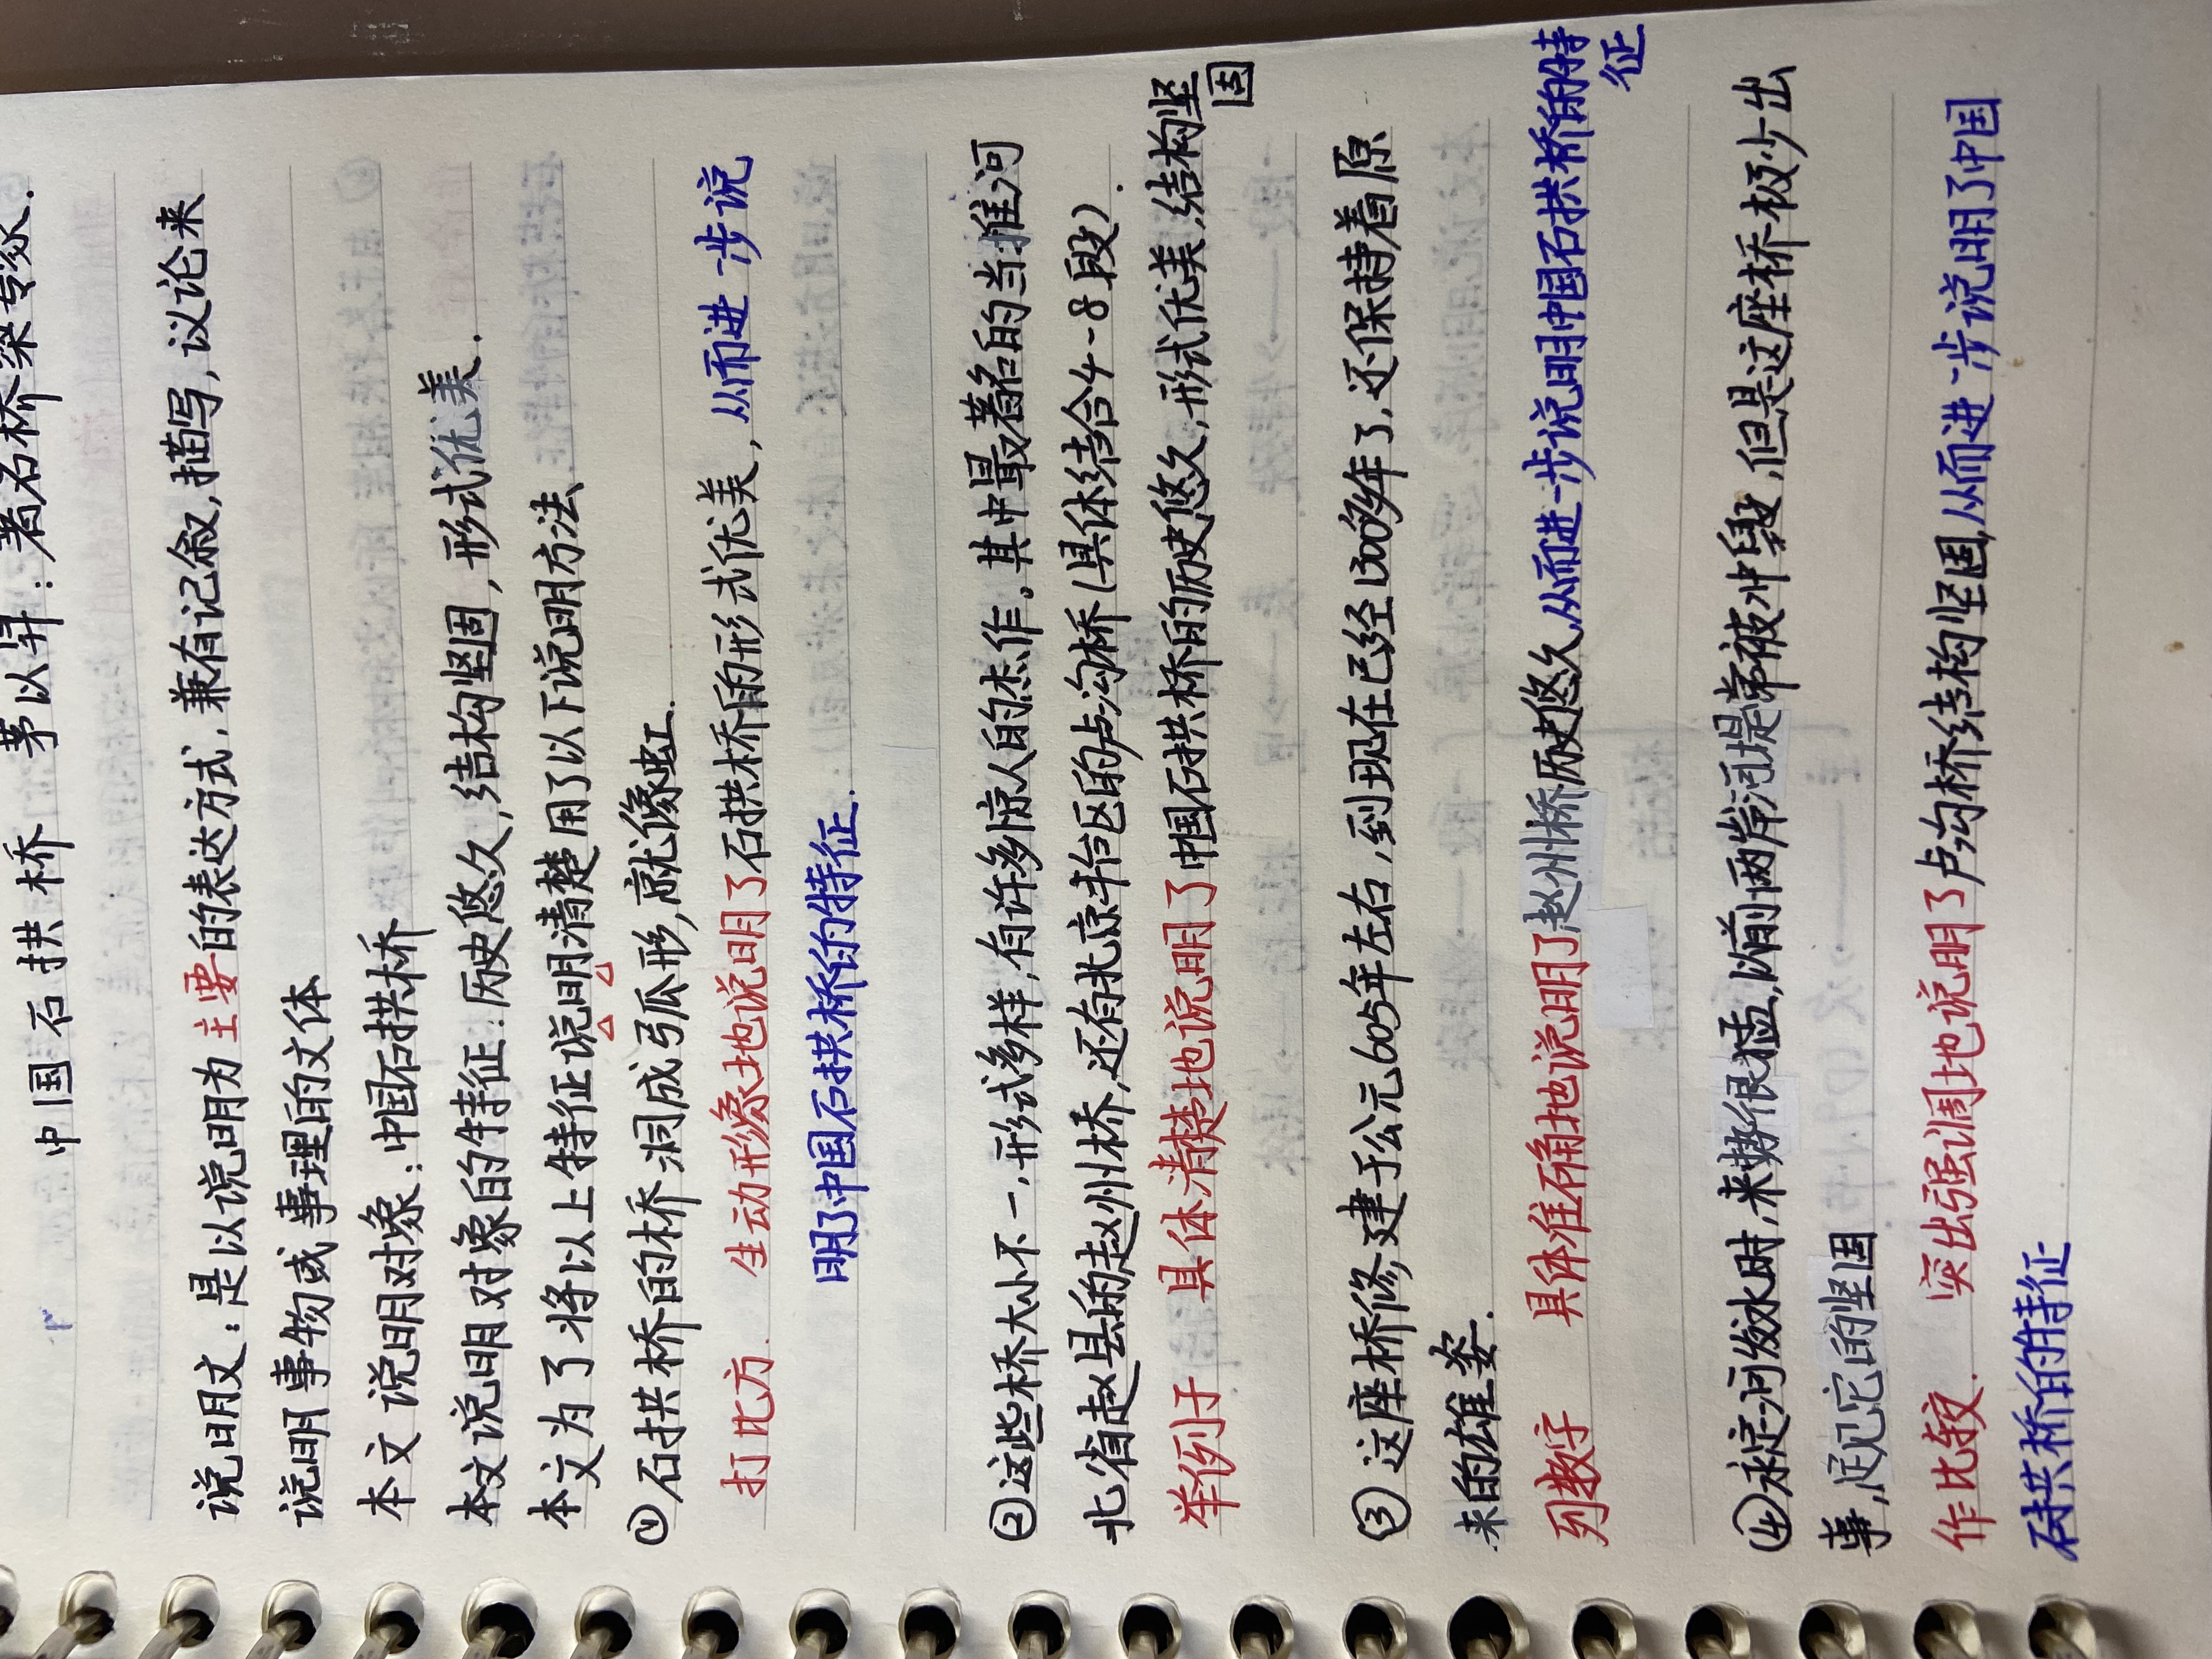 中国石拱桥 茅以昇：著名桥梁专家.
说明文：是以说明为主要的表达方式，兼有记叙，描写，议论来
说明事物或事理的文体
本文说明对象：中国石拱桥
本文说明对象的特征：历史悠久，结构坚固，形式优美.
本文为了将以上特征说明清楚用了以下说明方法
①石拱桥的桥洞成弧形，就像虹.
打比方. 生动形象地说明了石拱桥的形式优美，从而进一步说
明了中国石拱桥的特征.
②这些桥大小不一，形式多样，有许多惊人的杰作。其中最著名的当推河
北省赵县的赵州桥，还有北京丰台区的卢沟桥（具体结合4-8段）.
举例子 具体清楚地说明了中国石拱桥的历史悠久，形式优美，结构坚
固
③这座桥修，建于公元605年左右，到现在已经1300多年了，还保持着原
来的雄姿.
列数字 具体准确地说明了赵州桥历史悠久，从而进一步说明中国石拱桥的特
征
④永定河发水时，来势很猛，以前两岸河堤常被冲毁，但是这座桥极少出
事，足见它的坚固
作比较. 突出强调地说明了卢沟桥结构坚固，从而进一步说明了中国
石拱桥的特征